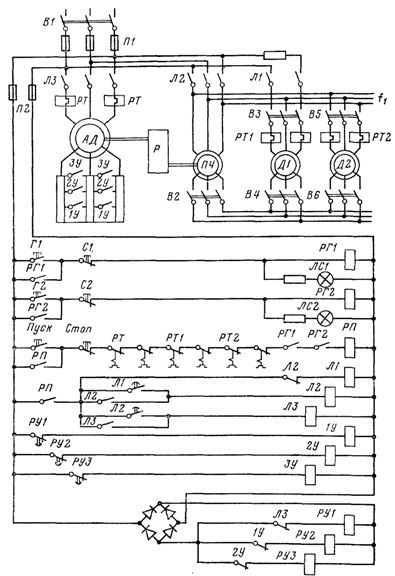 В1
П1
П2
Л3
РТ
РТ
Л2
Л1
f1
В3
В5
РТ1
РТ2
АД
Р
ПЧ
Д1
Д2
3У
3У
2У
2У
1У
1У
В2
В4
В6
Г1
С1
РГ1
РГ1
ЛС1
Г2
С2
РГ2
РГ2
ЛС2
Пуск
Стоп
РТ
РТ1
РТ2
РГ1
РГ2
РП
РП
Л2
Л1
РП
Л1
Л2
Л2
Л2
Л3
Л3
РУ1
1У
РУ2
2У
РУ3
3У
Л3
РУ1
1У
РУ2
2У
РУ3